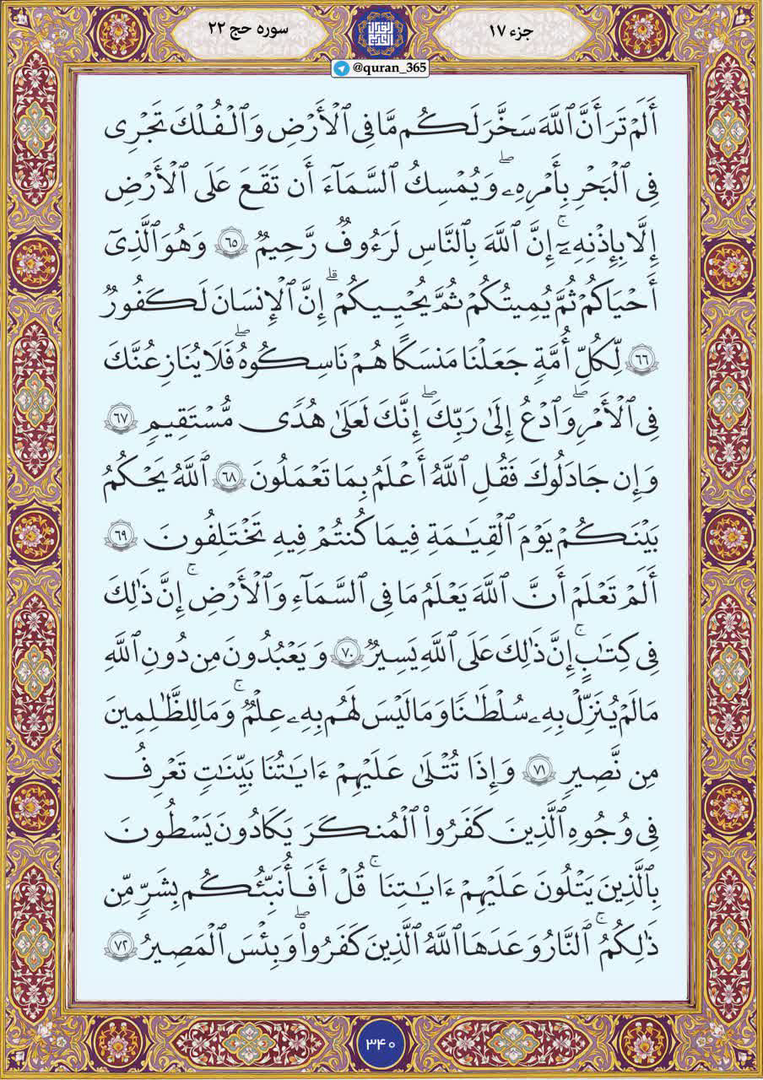 جزء ۱۷
سوره حج ۲۲
@quran_365
أَلَمْ تَرَ أَنَّ ٱللَّهَ سَخَّرَ لَكُم مَّا فِى ٱلْأَرْضِ وَٱلْفُلْكَ تَجْرِى
فِى ٱلْبَحْرِ بِأَمْرِهِۦ ۖ وَيُمْسِكُ ٱلسَّمَآءَ أَن تَقَعَ عَلَى ٱلْأَرْضِ
إِلَّا بِإِذْنِهِۦٓ ۗ إِنَّ ٱللَّهَ بِٱلنَّاسِ لَرَءُوفٌ رَّحِيمٌ ٦٥ وَهُوَ ٱلَّذِىٓ
أَحْيَاكُمْ ثُمَّ يُمِيتُكُمْ ثُمَّ يُحْيِيكُمْ ۗ إِنَّ ٱلْإِنسَانَ لَكَفُورٌ
٦٦ لِّكُلِّ أُمَّةٍ جَعَلْنَا مَنسَكًا هُمْ نَاسِكُوهُ ۖ فَلَا يُنَازِعُنَّكَ
فِى ٱلْأَمْرِ ۖ وَٱدْعُ إِلَىٰ رَبِّكَ ۖ إِنَّكَ لَعَلَىٰ هُدًى مُّسْتَقِيمٍ ٦٧
وَإِن جَادَلُوكَ فَقُلِ ٱللَّهُ أَعْلَمُ بِمَا تَعْمَلُونَ ٦٨ ٱللَّهُ يَحْكُمُ
بَيْنَكُمْ يَوْمَ ٱلْقِيَٰمَةِ فِيمَا كُنتُمْ فِيهِ تَخْتَلِفُونَ ٦٩
أَلَمْ تَعْلَمْ أَنَّ ٱللَّهَ يَعْلَمُ مَا فِى ٱلسَّمَآءِ وَٱلْأَرْضِ ۗ إِنَّ ذَٰلِكَ
فِى كِتَٰبٍ ۚ إِنَّ ذَٰلِكَ عَلَى ٱللَّهِ يَسِيرٌ ٧٠ وَيَعْبُدُونَ مِن دُونِ ٱللَّهِ
مَا لَمْ يُنَزِّلْ بِهِۦ سُلْطَٰنًا وَمَا لَيْسَ لَهُم بِهِۦ عِلْمٌ ۗ وَمَا لِلظَّٰلِمِينَ
مِن نَّصِيرٍ ٧١ وَإِذَا تُتْلَىٰ عَلَيْهِمْ ءَايَٰتُنَا بَيِّنَٰتٍ تَعْرِفُ
فِى وُجُوهِ ٱلَّذِينَ كَفَرُوا۟ ٱلْمُنكَرَ يَكَادُونَ يَسْطُونَ
بِٱلَّذِينَ يَتْلُونَ عَلَيْهِمْ ءَايَٰتِنَا ۗ قُلْ أَفَأُنَبِّئُكُم بِشَرٍّ مِّن
ذَٰلِكُمُ ۗ ٱلنَّارُ وَعَدَهَا ٱللَّهُ ٱلَّذِينَ كَفَرُوا۟ ۖ وَبِئْسَ ٱلْمَصِيرُ ٧٢
۳۴۰